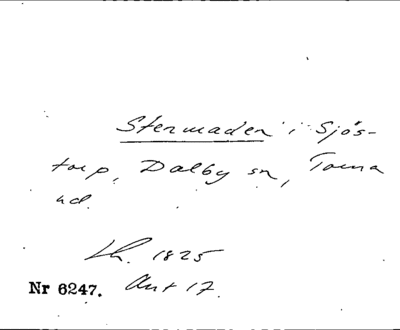 Stenmaden i Sjös-
torp, Dalby sn, Torna
hd.
Lh. 1825
Nr 6247. Akt 17.